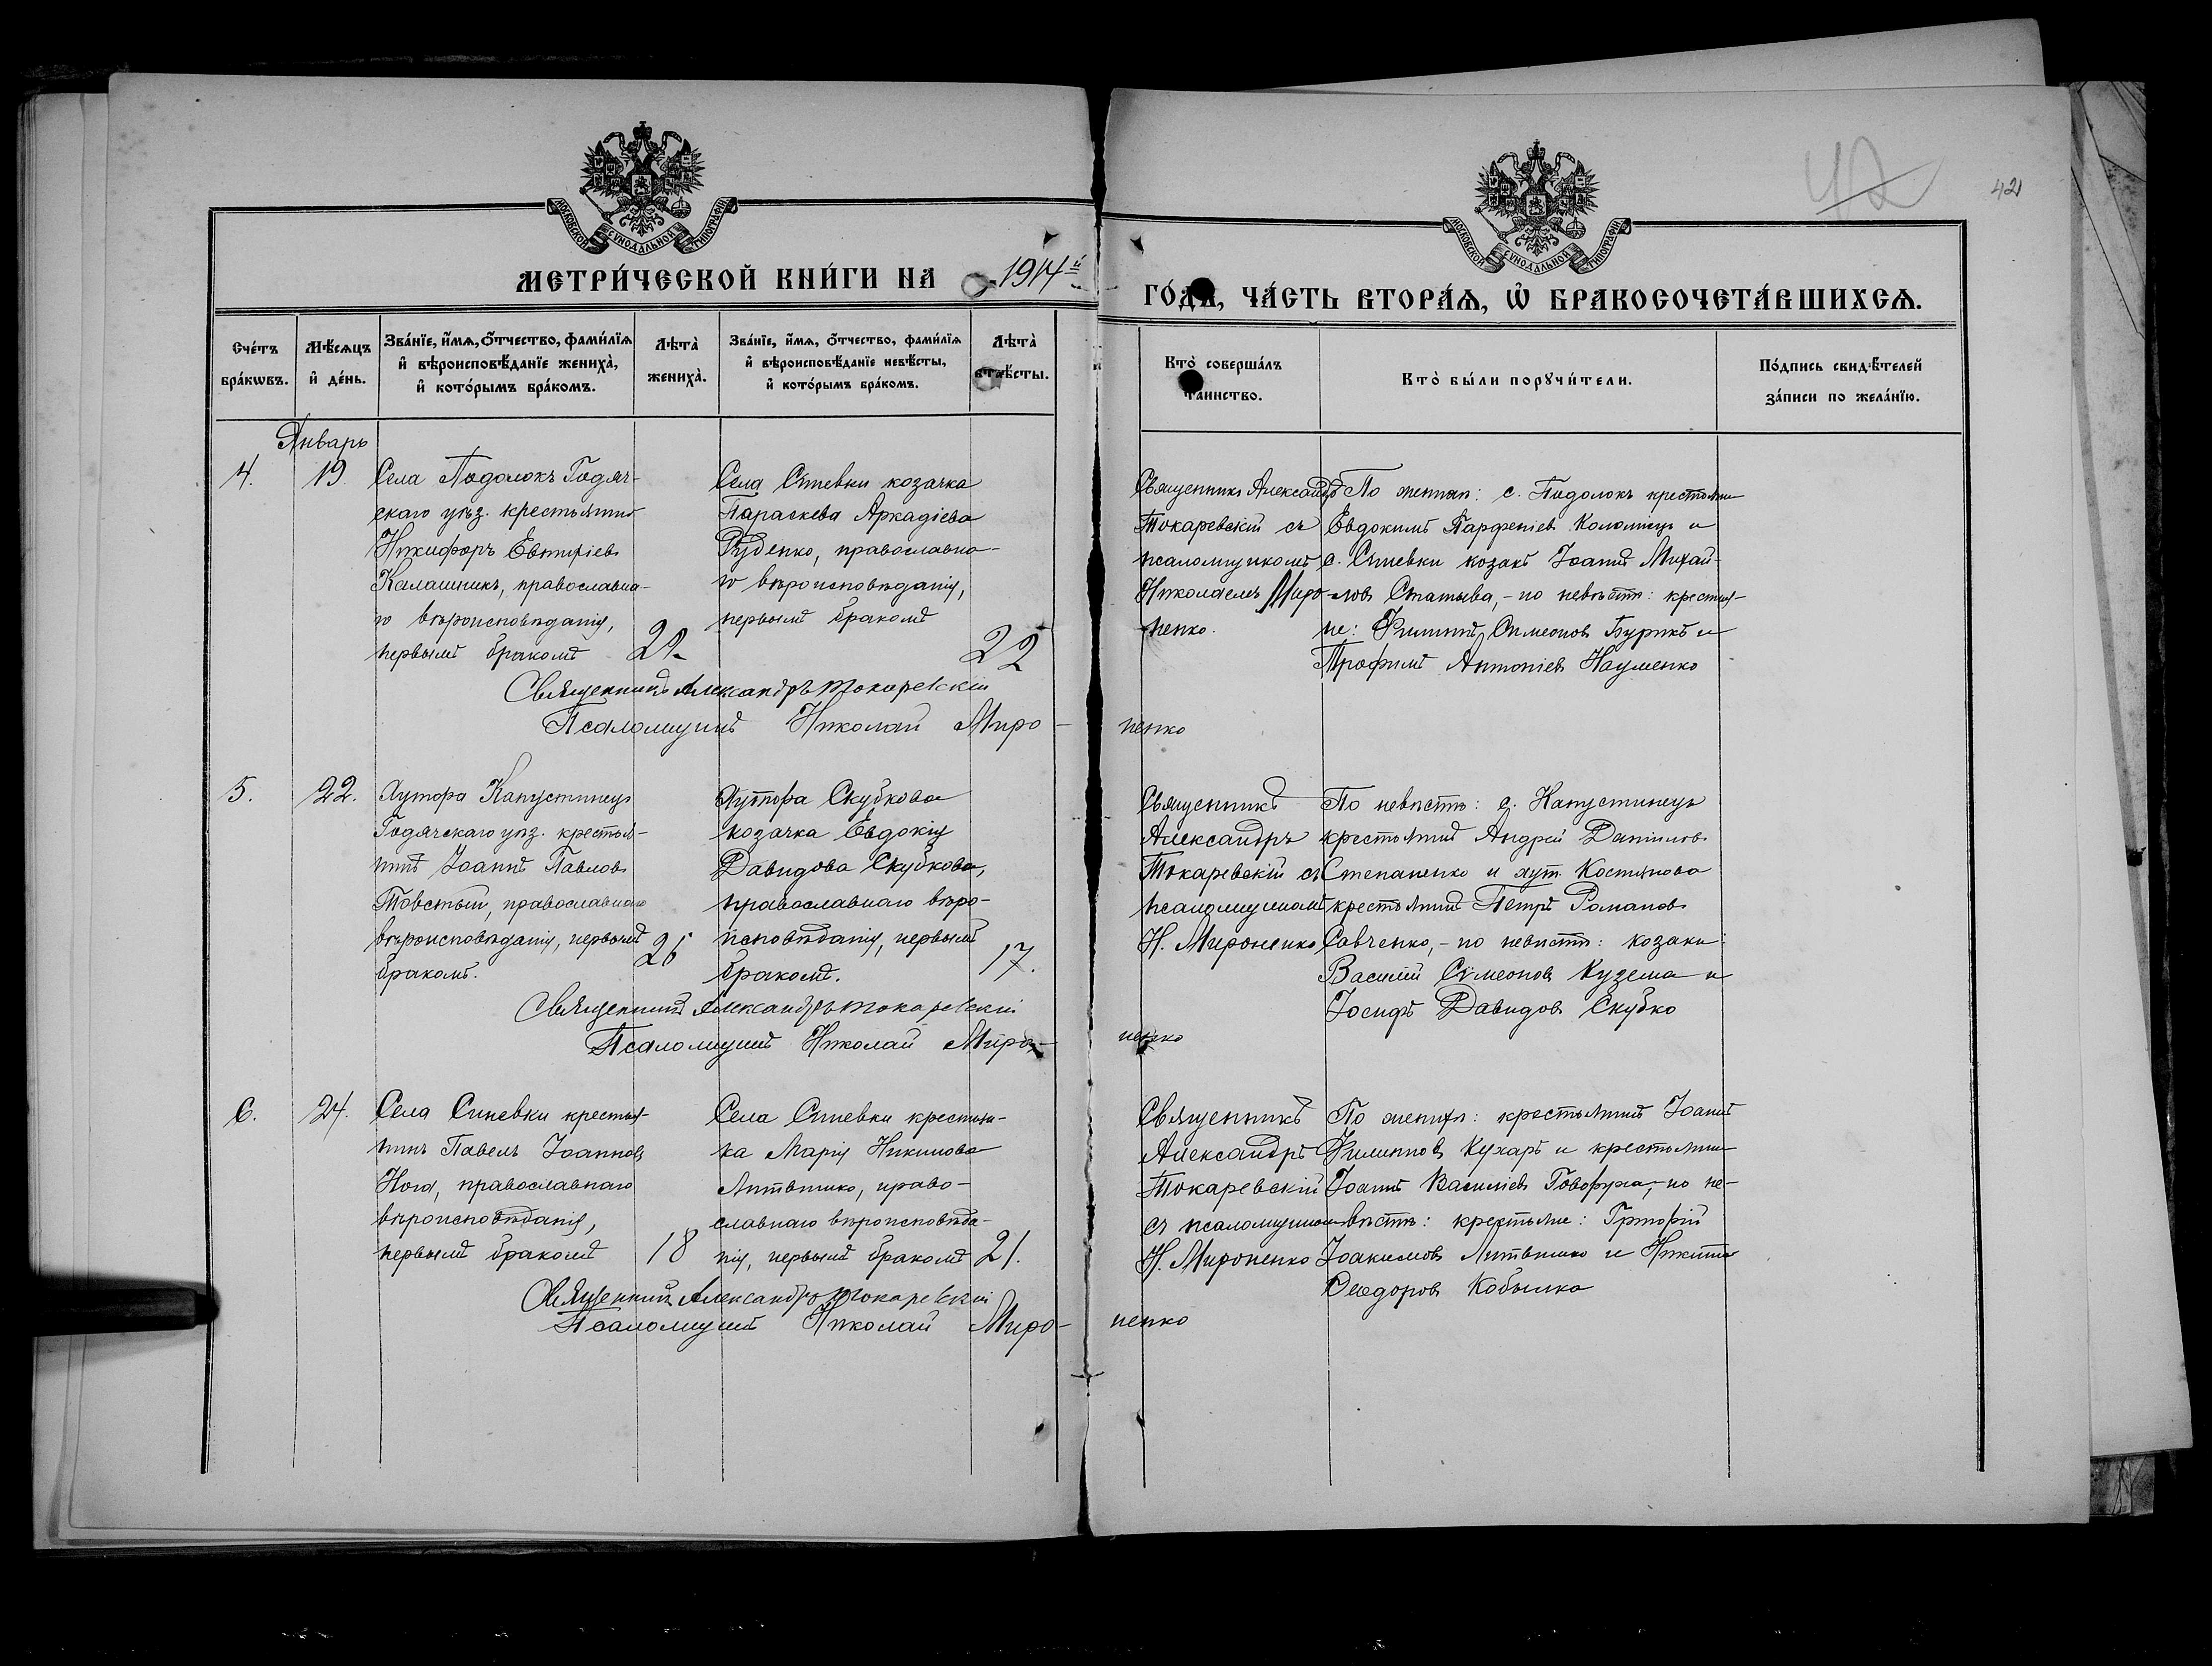 42
42
МОСКОВСКОЙ СѴНОДАЛЬНОЙ ТИПОГРАФІИ
МОСКОВСКОЙ СѴНОДАЛЬНОЙ ТИПОГРАФІИ
МЕТРИ́ЧЕСКОЙ КНИ́ГИ НА 1914й
ГО́ДА, ЧА́СТЬ ВТОРА́Ѧ, Ѡ҆ БРАКОСОЧЕТА́ВШИХСѦ.
Сче́тъ бра́кѡвъ.
Мѣ́сяцъ и҆ де́нь.
Зва́нїе, и҆́мѧ, ѻ҆́тчество, фами́лїѧ и҆ вѣроисповѣ́данїе жениха̀, и҆ кото́рымъ бра́комъ.
Лѣта̀ жениха̀.
Зва́нїе, и҆́мѧ, ѻ҆́тчество, фами́лїѧ и҆ вѣроисповѣ́данїе невѣ́сты, и҆ кото́рымъ бра́комъ.
Лѣта̀
Кто̀ соверша́лъ та́инство.
Кто̀ бы́ли порꙋчи́тели.
По́дпись свидѣ́телей за́писи по жела́нїю.
Январь
4.
19
Села Подолокъ Гадяч-
скаго уѣз. крестьянинъ
Никифоръ Евтихіевъ
Калашникъ, православна-
го вѣроисповѣданія,
первымъ бракомъ
Села Синевки козачка
Параскева Аркадіева
Руденко, православна-
го вѣроисповѣданія,
первымъ бракомъ
22
Священникъ Александръ
Токаревскій съ
псаломщикомъ
Николаемъ Миро-
ненко.
По женихѣ: с. Подолокъ крестьянинъ
Евдокимъ Парфеніевъ Коломіецъ и
с. Синевки козакъ Іоаннъ Михай-
ловъ - по невѣстѣ: крестья-
не: Филиппъ Симеоновъ Бурикъ и
Трофимъ Антоніевъ Науменко
Священникъ Александръ Токаревскій
Псаломщикъ Николай Миро-
ненко
5.
22.
Хутора Капустинецъ
Гадячскаго уѣз. крестья-
нинъ Іоаннъ Павловъ
Товстый, православнаго
вѣроисповѣданія, первымъ
бракомъ.
26
Хутора Скубкова
козачка Евдокія
Давидова Скубкова,
православнаго вѣро-
исповѣданія, первымъ
бракомъ.
17.
Священникъ
Александръ
Токаревскій съ
псаломщикомъ
Н. Мироненко
По невѣстѣ: с. Капустинецъ
крестьянинъ Андрей Даніиловъ
Степаненко и хут. Костянова
крестьянинъ Петръ Романовъ
Савченко, - по невѣстѣ: козаки:
Василій Симеоновъ Кузема и
Іосифъ Давидовъ Скубко
Священникъ Александръ Токаревскій
Псаломщикъ Николай Миро-
ненко
6.
24.
Села Синевки крестья-
нинъ Павелъ Іоанновъ
Нога, православнаго
вѣроисповѣданія,
первымъ бракомъ
18
Села Синевки крестьян-
ка Марія Никитова
Литвинко, право-
славнаго вѣроисповѣда-
нія, первымъ бракомъ
21.
Священникъ
Александръ
Токаревскій
съ псаломщикомъ
Н. Мироненко
По женихѣ: крестьянинъ Іоаннъ
Филипповъ Кухаръ и крестьянинъ
Іоаннъ Василіевъ Говоруха, - по не-
вѣстѣ: крестьяне: Григорій
Іоакимовъ Литвинко и Никита
Ѳеодоровъ Кобылка
Священникъ Александръ Токаревскій
Псаломщикъ Николай Миро-
ненко